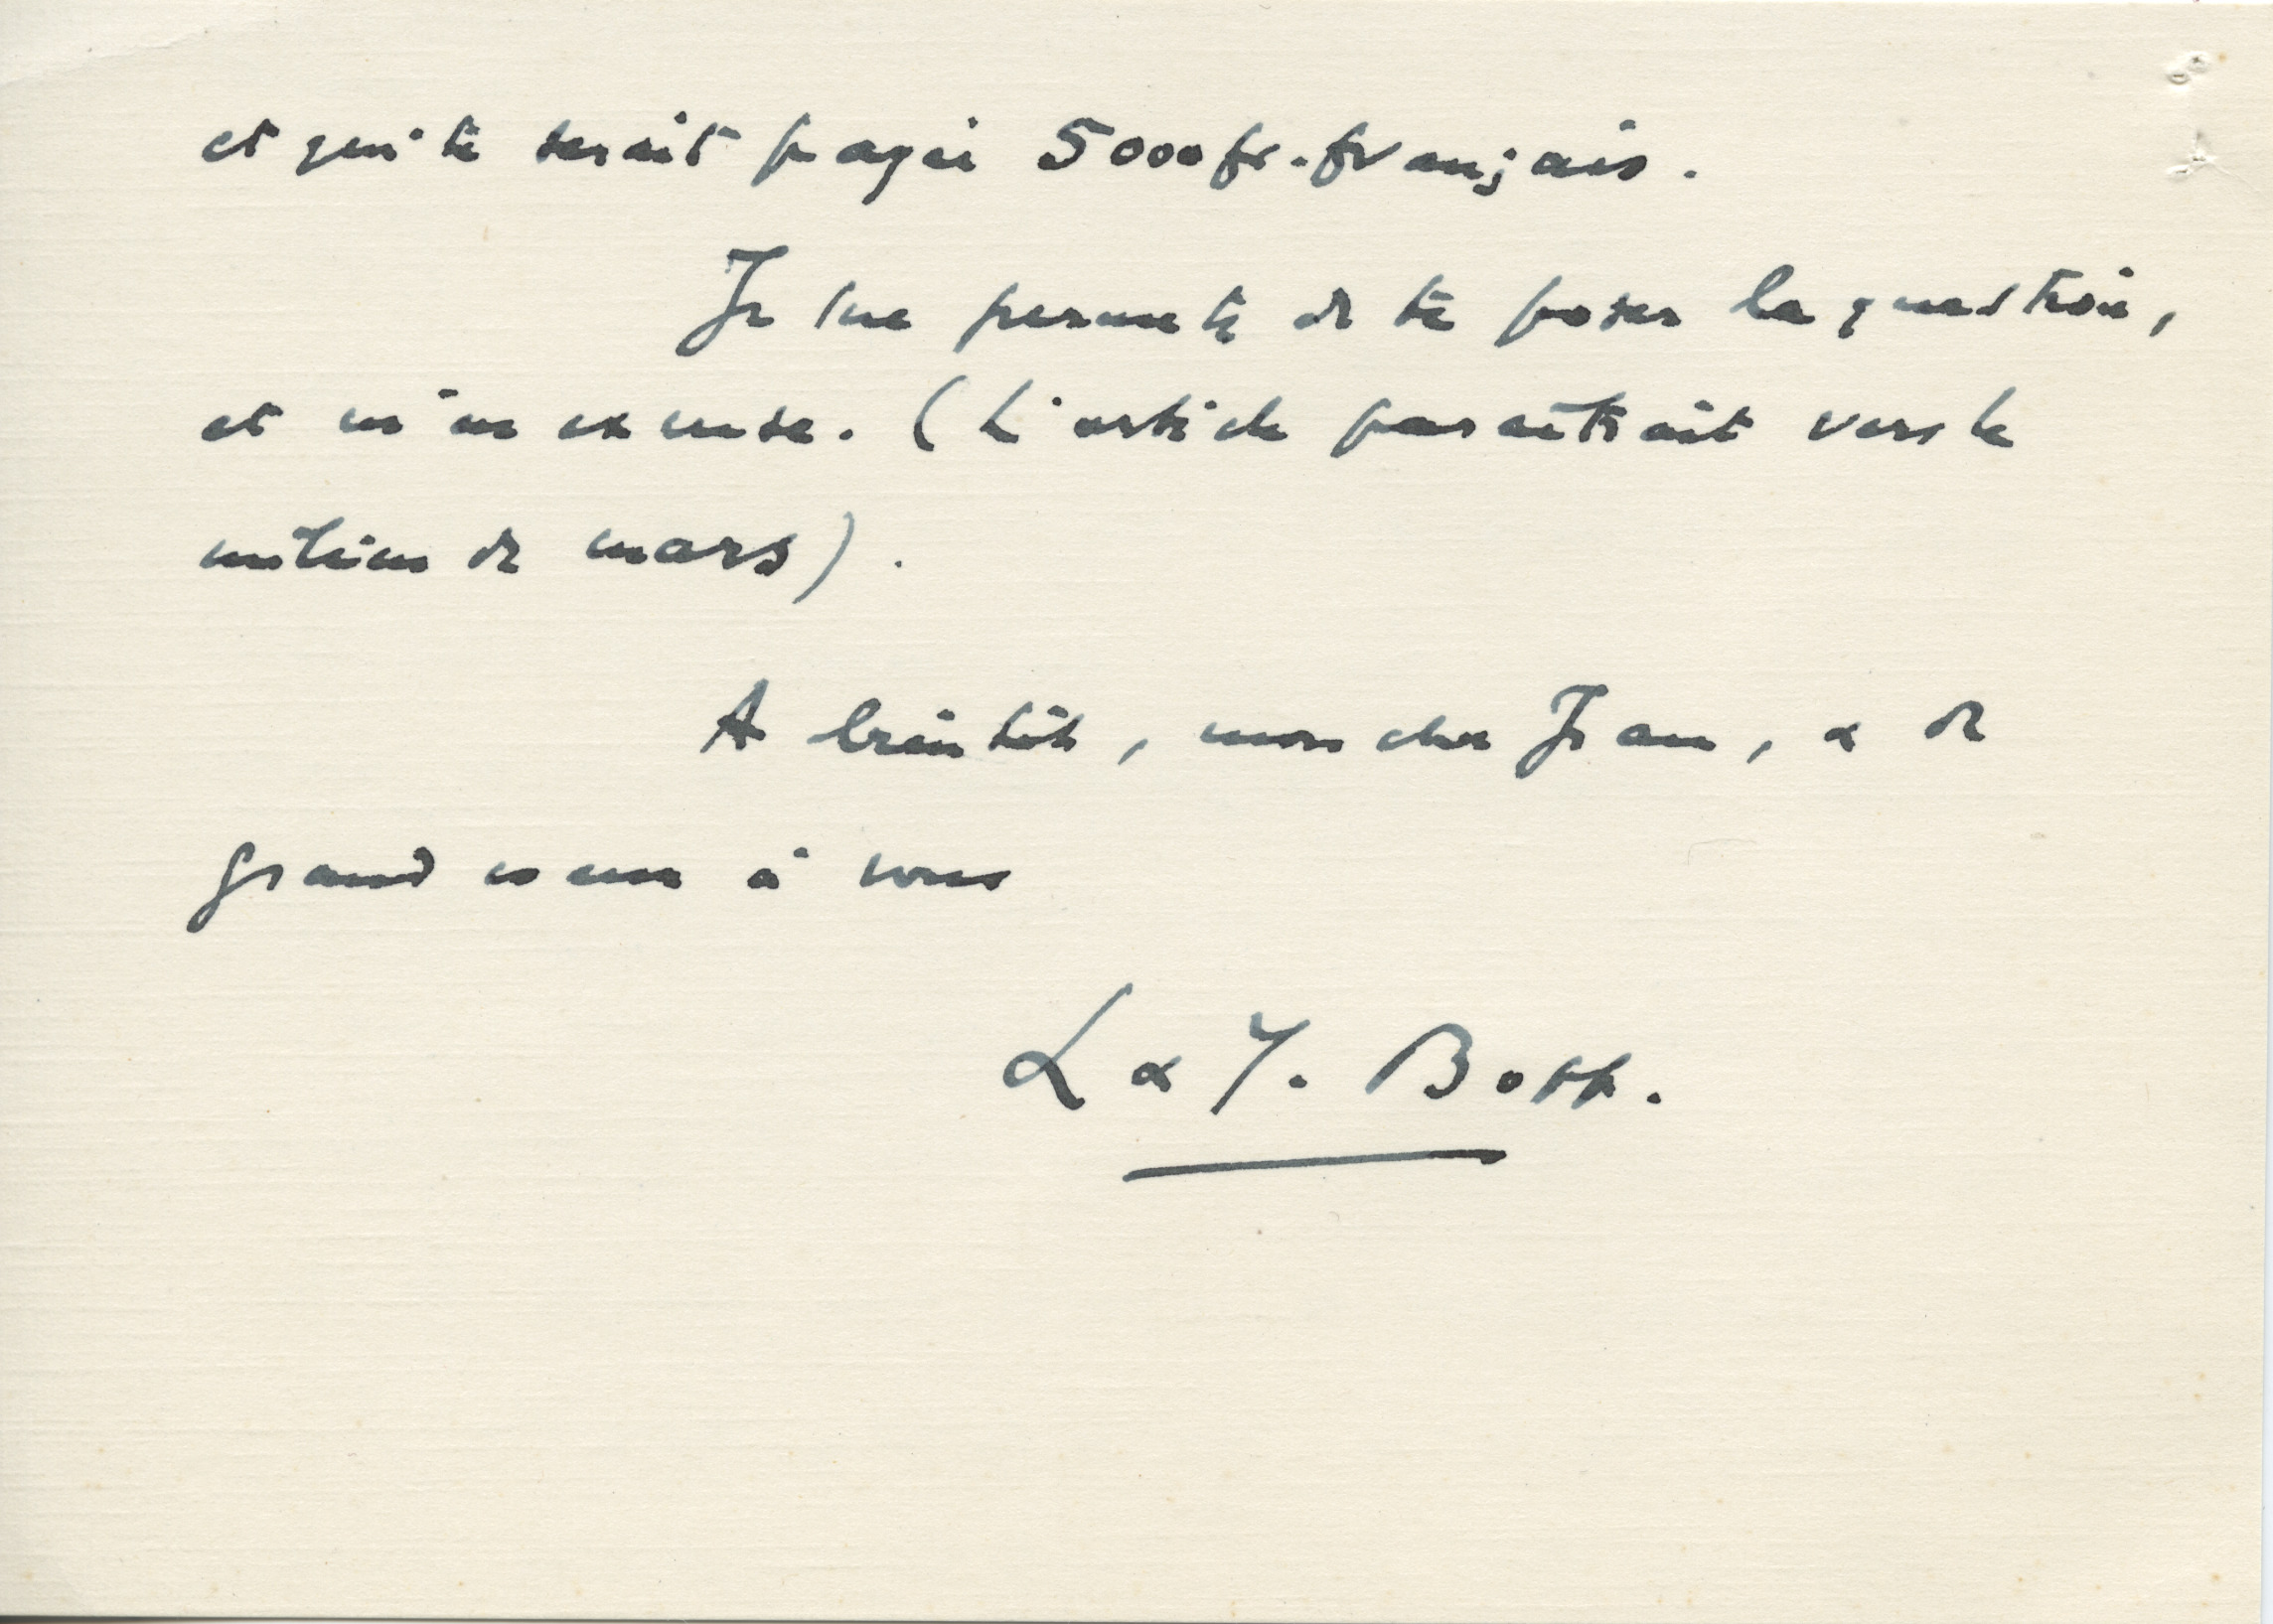 et qui te serait payé 5000 fr. français.
Je me permets de te poser la question,
et m'en excuse. (L'article paraîtrait vers le
milieu de mars).
A bientôt, mon cher Jean, & de
grand cœur à vous
L & Y. Bopp.